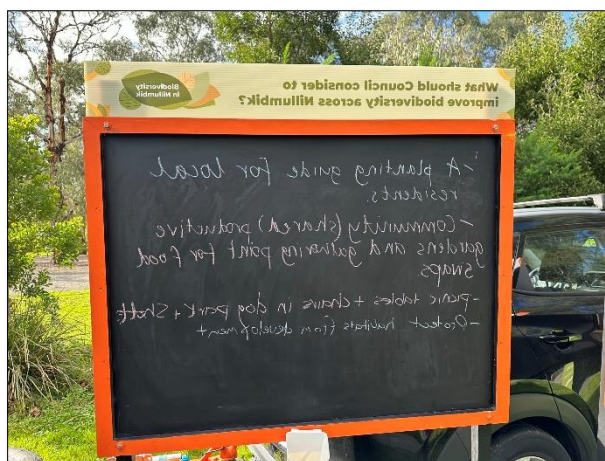 What should Council consider to
improve biodiversity across Nillumbik?
Biodiversity
in Nillumbik
- A planting guide for local
residents.
- Community (shared) productive
gardens and gathering point for food
swaps
- picnic tables + chairs in dog park +
- Protect habitats from development